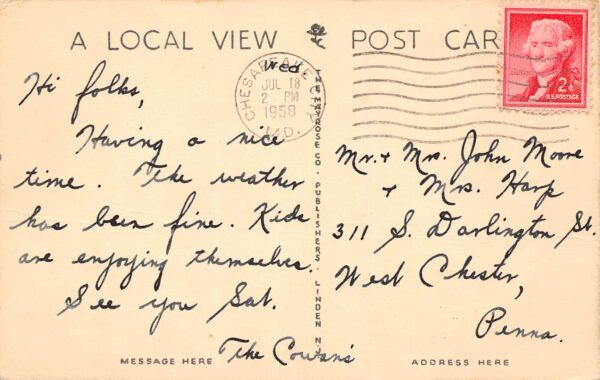 A LOCAL VIEW POST CAR
Wed
CHESAPEAKE CITY
JUL 18
2 PM
1958
MD.
JEFFERSON
2¢
U.S. POSTAGE
Hi folks,
Having a nice
time. The weather
has been fine. Kids
are enjoying themselves.
See you Sat.
The Cowan's
THE MAYROSE CO. PUBLISHERS. LINDEN N.J.
Mr. + Mrs. John Moore
+ Mrs. Harp
311 S. Darlington St.
West Chester,
Penna.
MESSAGE HERE
ADDRESS HERE